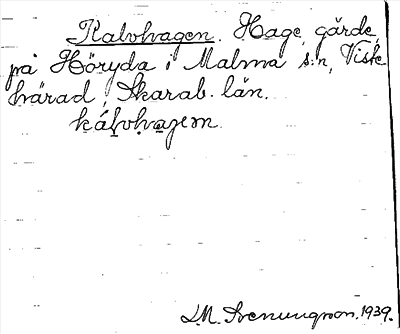 Kalvhagen. Hage, gärde,
på Höryda i Malma s:n, Viste
härad, Skarab. län.
kálvhagem
L.M. Svenungson. 1939.